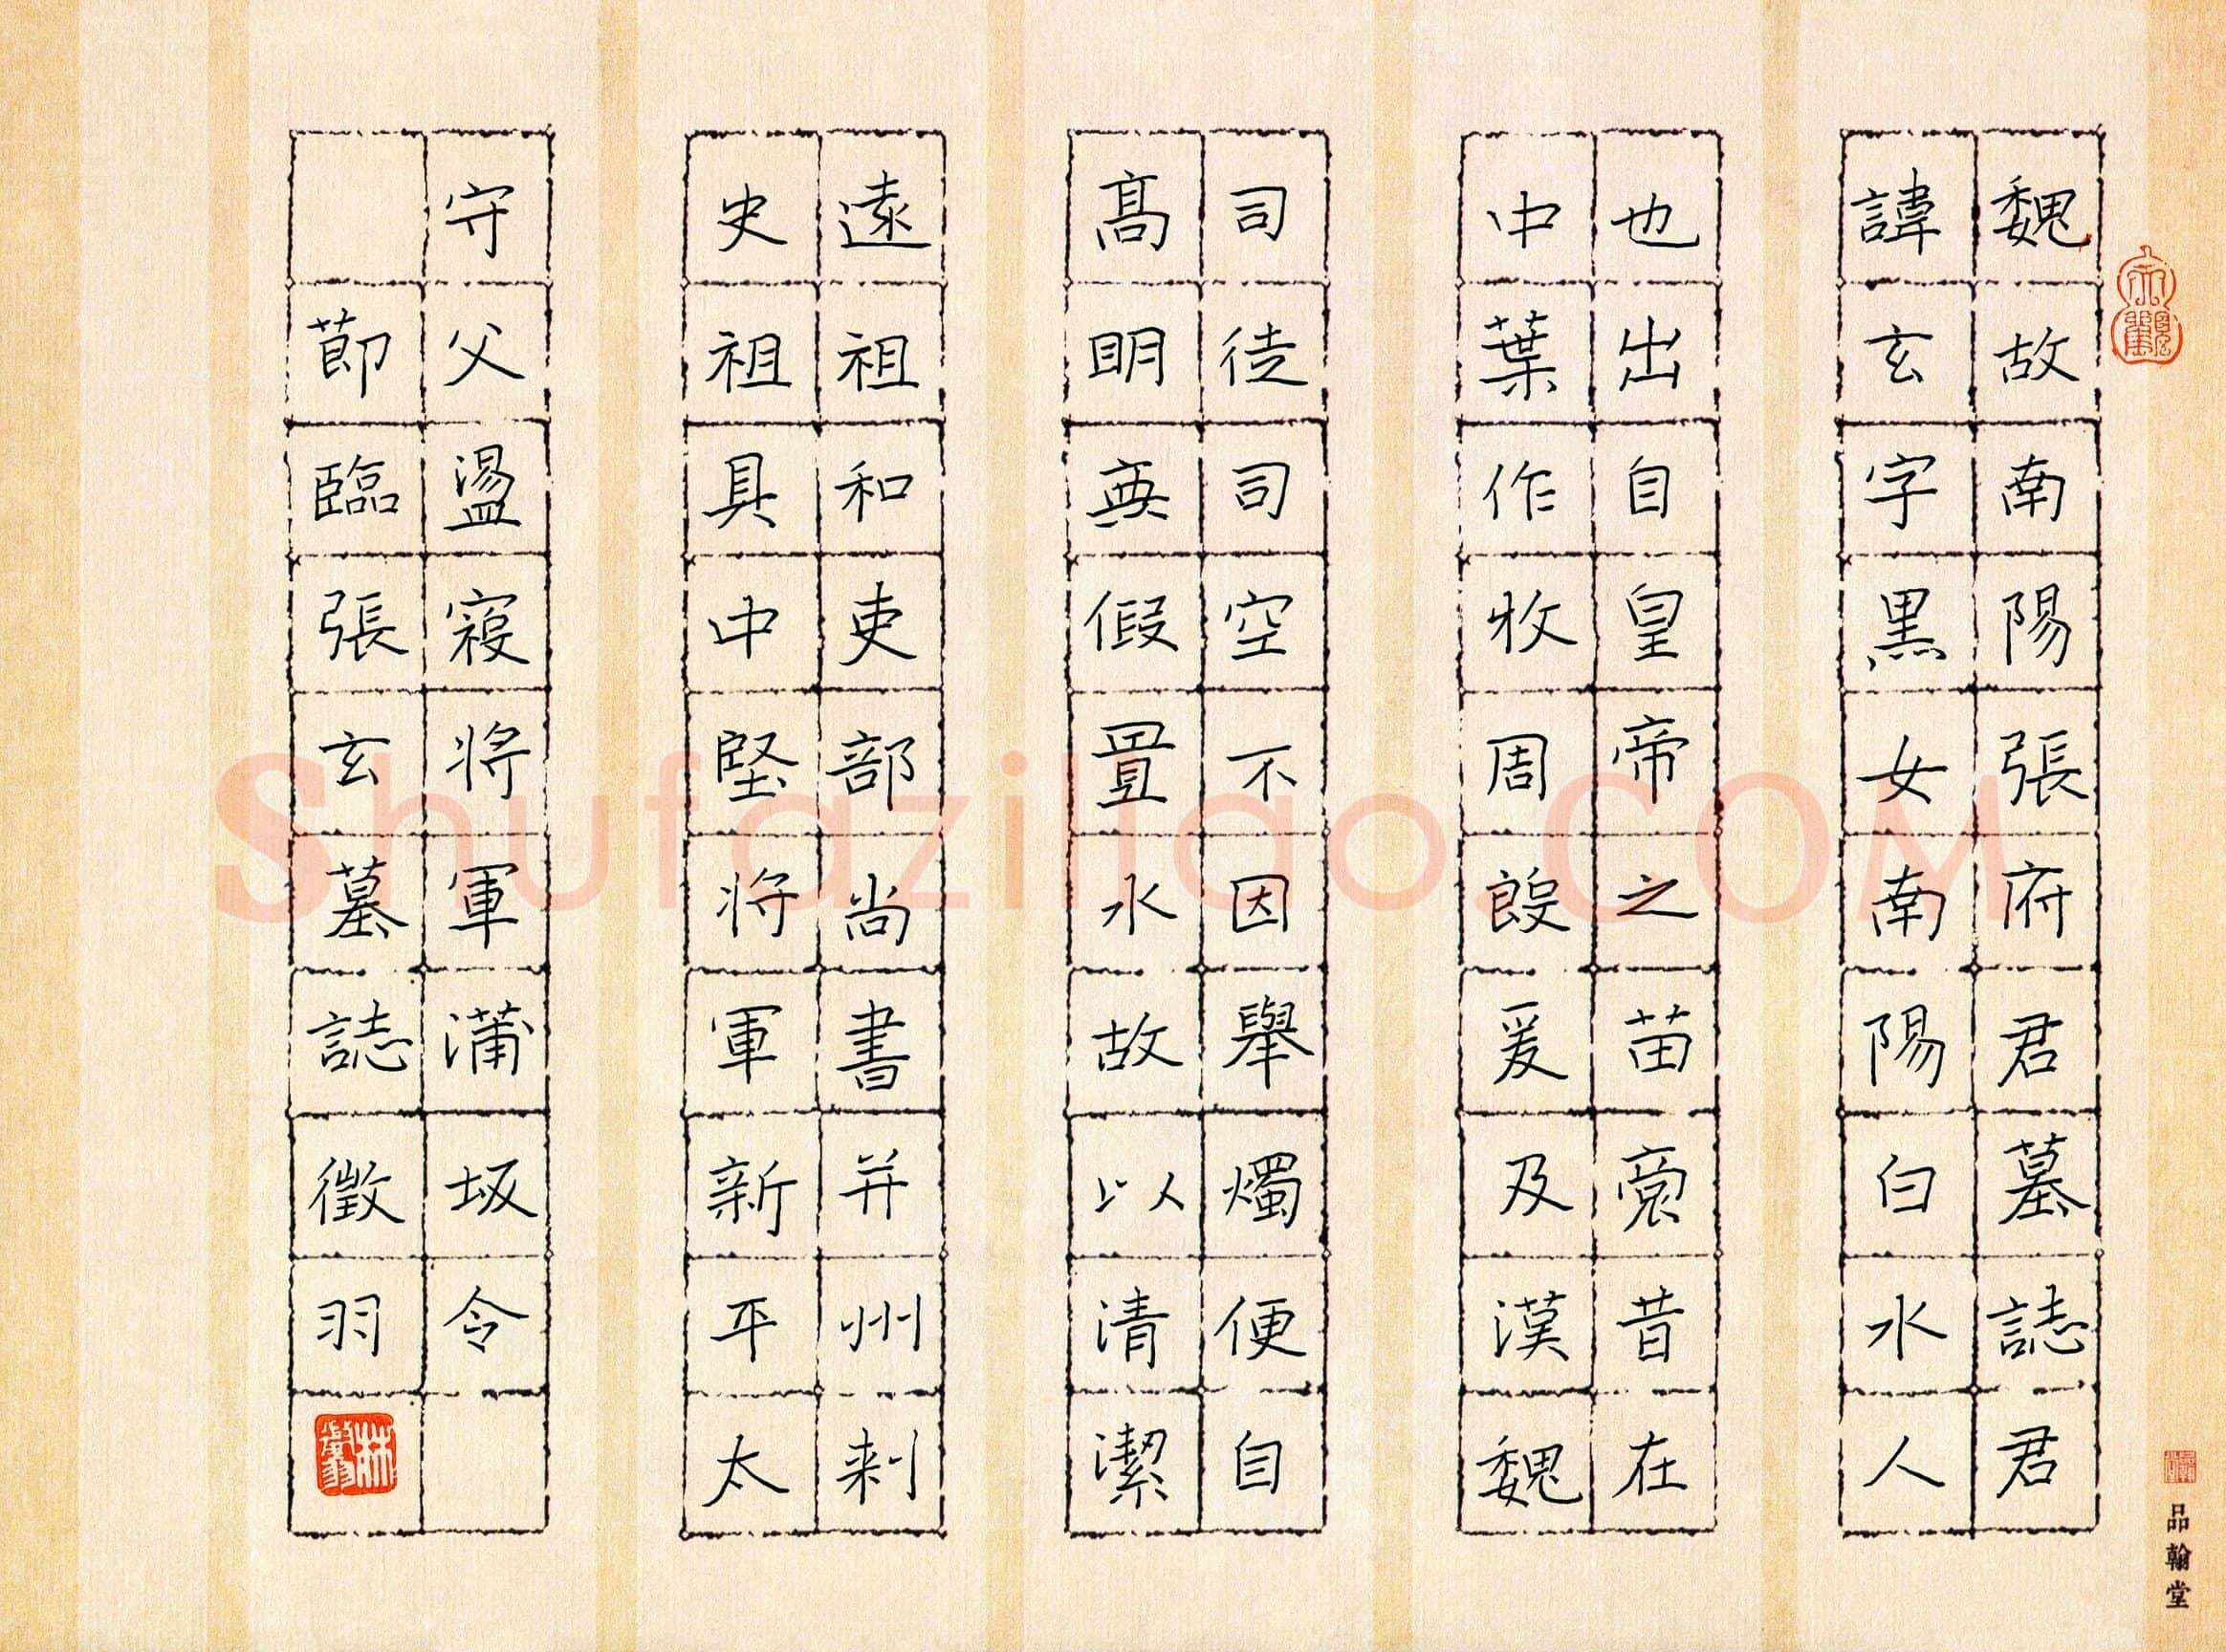 魏故南陽張府君墓誌君
諱玄字黑女南陽白水人
也出自皇帝之苗裔昔在
中葉作牧周殷爰及漢魏
司徒司空不因舉燭便自
高明無假置水故以清潔
遠祖和吏部尚書并州刺
史祖具中堅將軍新平太
守父盪寇將軍蒲坂令
節臨張玄墓誌徵羽
品翰堂
Shufaziliao.COM